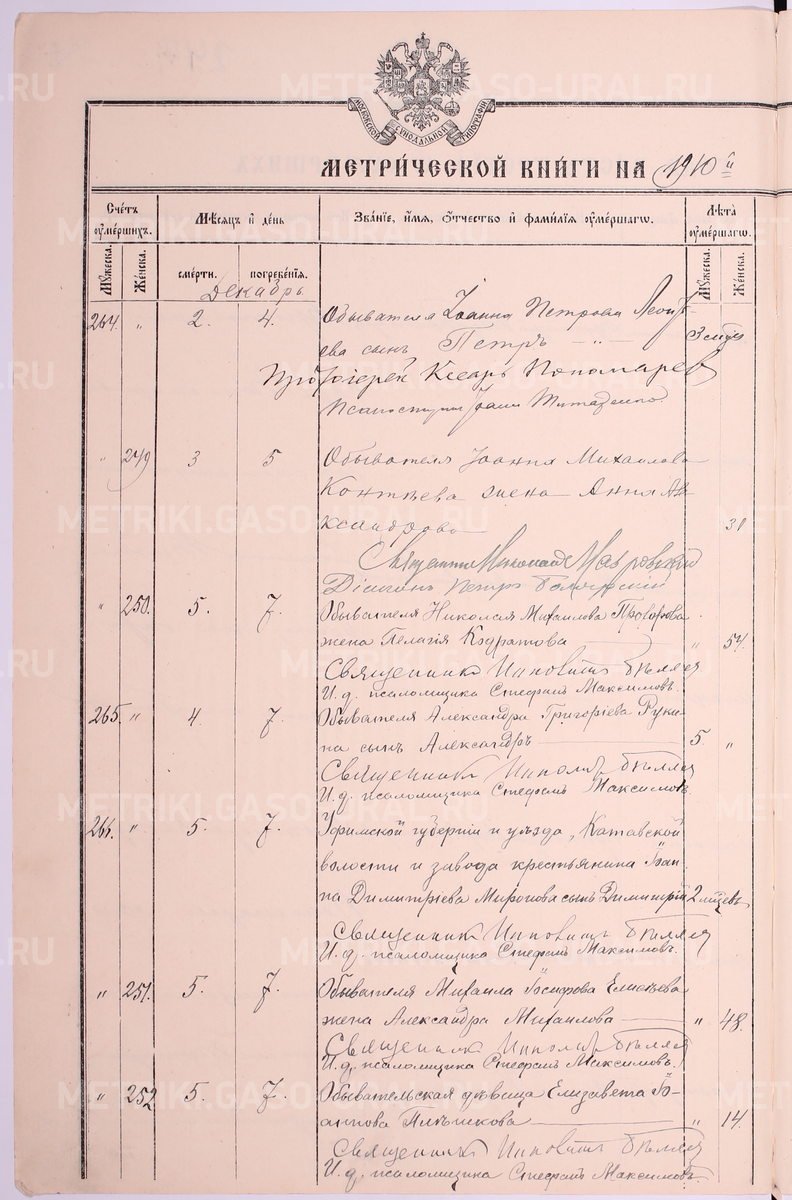 МОСКОВСКОЙ СѴНОДАЛЬНОЙ ТИПОГРАФІИ
МЕТРИ́ЧЕСКОЙ КНИ́ГИ НА 1910 й
Сче́тъ ᲂу҆ме́ршихъ.
Мѣ́сѧцъ и҆ де́нь
Зва́нїе, и҆́мѧ, ѻ҆́тчество и҆ фами́лїѧ ᲂу҆ме́ршагѡ.
Лѣ́та ᲂу҆ме́ршагѡ.
Мꙋ́жеска.
Же́нска.
сме́рти.
погребе́нїѧ.
Мꙋ́жеска.
Же́нска.
Декабрь.
264. " 2. 4. Обывателя Іоанна Петрова Леонть-
ева сынъ Петръ — " — 3
Протоіерей Кесарь Пономарев
Псаломщик
" 249 3 5 Обывателя Іоанна Михаилова
жена Анна Але-
ксандрова 31
Священник Николай Мавровскій
Діаконъ Петръ
" 250. 5. 7. Обывателя Николая Михаилова Прохорова
жена Пелагія Кодратова " 54.
Священникъ Ипполитъ Бѣляев
И. д. псаломщика Стефанъ Максимовъ.
265. " 4. 7. Обывателя Александра Григоріева Руки-
на сынъ Александръ 5. "
Священникъ Ипполит Бѣляев
И. д. псаломщика Стефанъ Максимовъ.
266. " 5. 7. Уфимской губерніи и уѣзда, Катавской
волости и завода крестьянина Іоан-
на Димитріева Миронова сынъ Димитрій 2 мѣсцевъ
Священник Ипполитъ Бѣляев
И. д. псаломщика Стефанъ Максимовъ.
" 251. 5. 7. Обывателя Михаила Іосифова Елисѣева
жена Александра Михаилова " 48.
Священник Ипполит Бѣляев
И. д. псаломщика Стефанъ Максимовъ.
" 252 5. 7. Обывательская дѣвица Елизавета Іо-
аннова Плѣшкова " 14.
Священникъ Ипполитъ Бѣляев
И. д. псаломщика Стефанъ Максимовъ.
METRIKI.GASO-URAL.RU